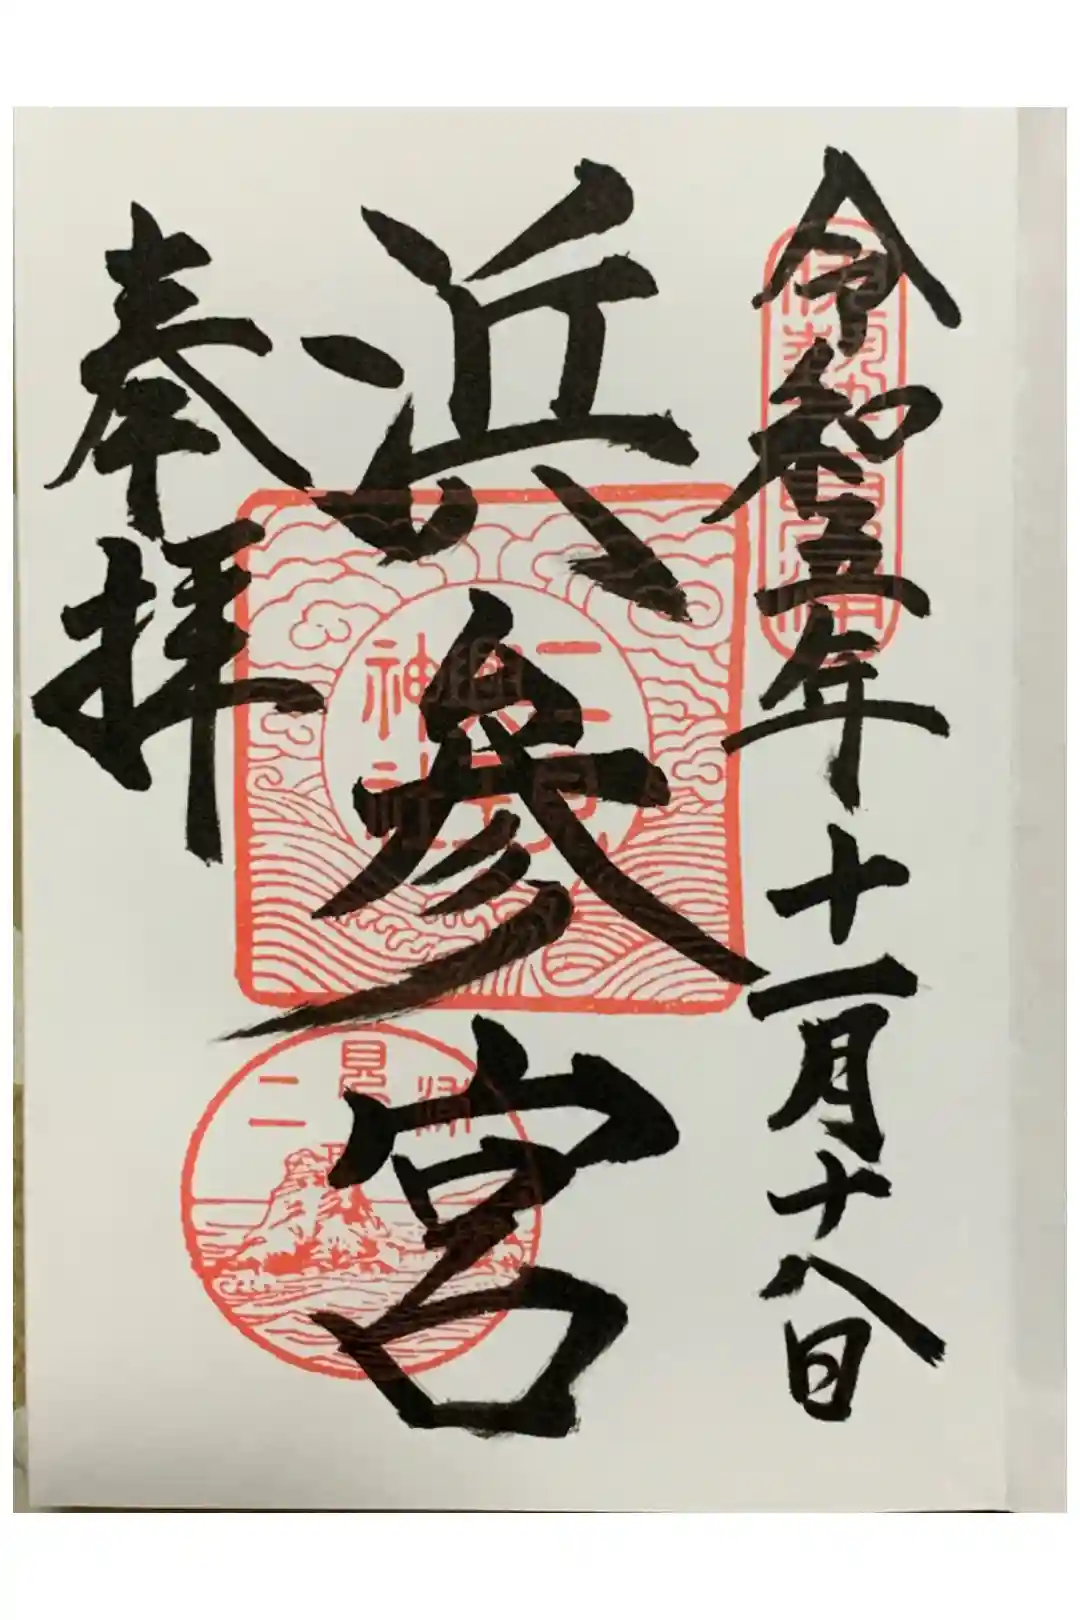 令和五年十一月十八日
伊勢二見浦
浜参宮
二見
興玉
神社
二見浦
奉拝